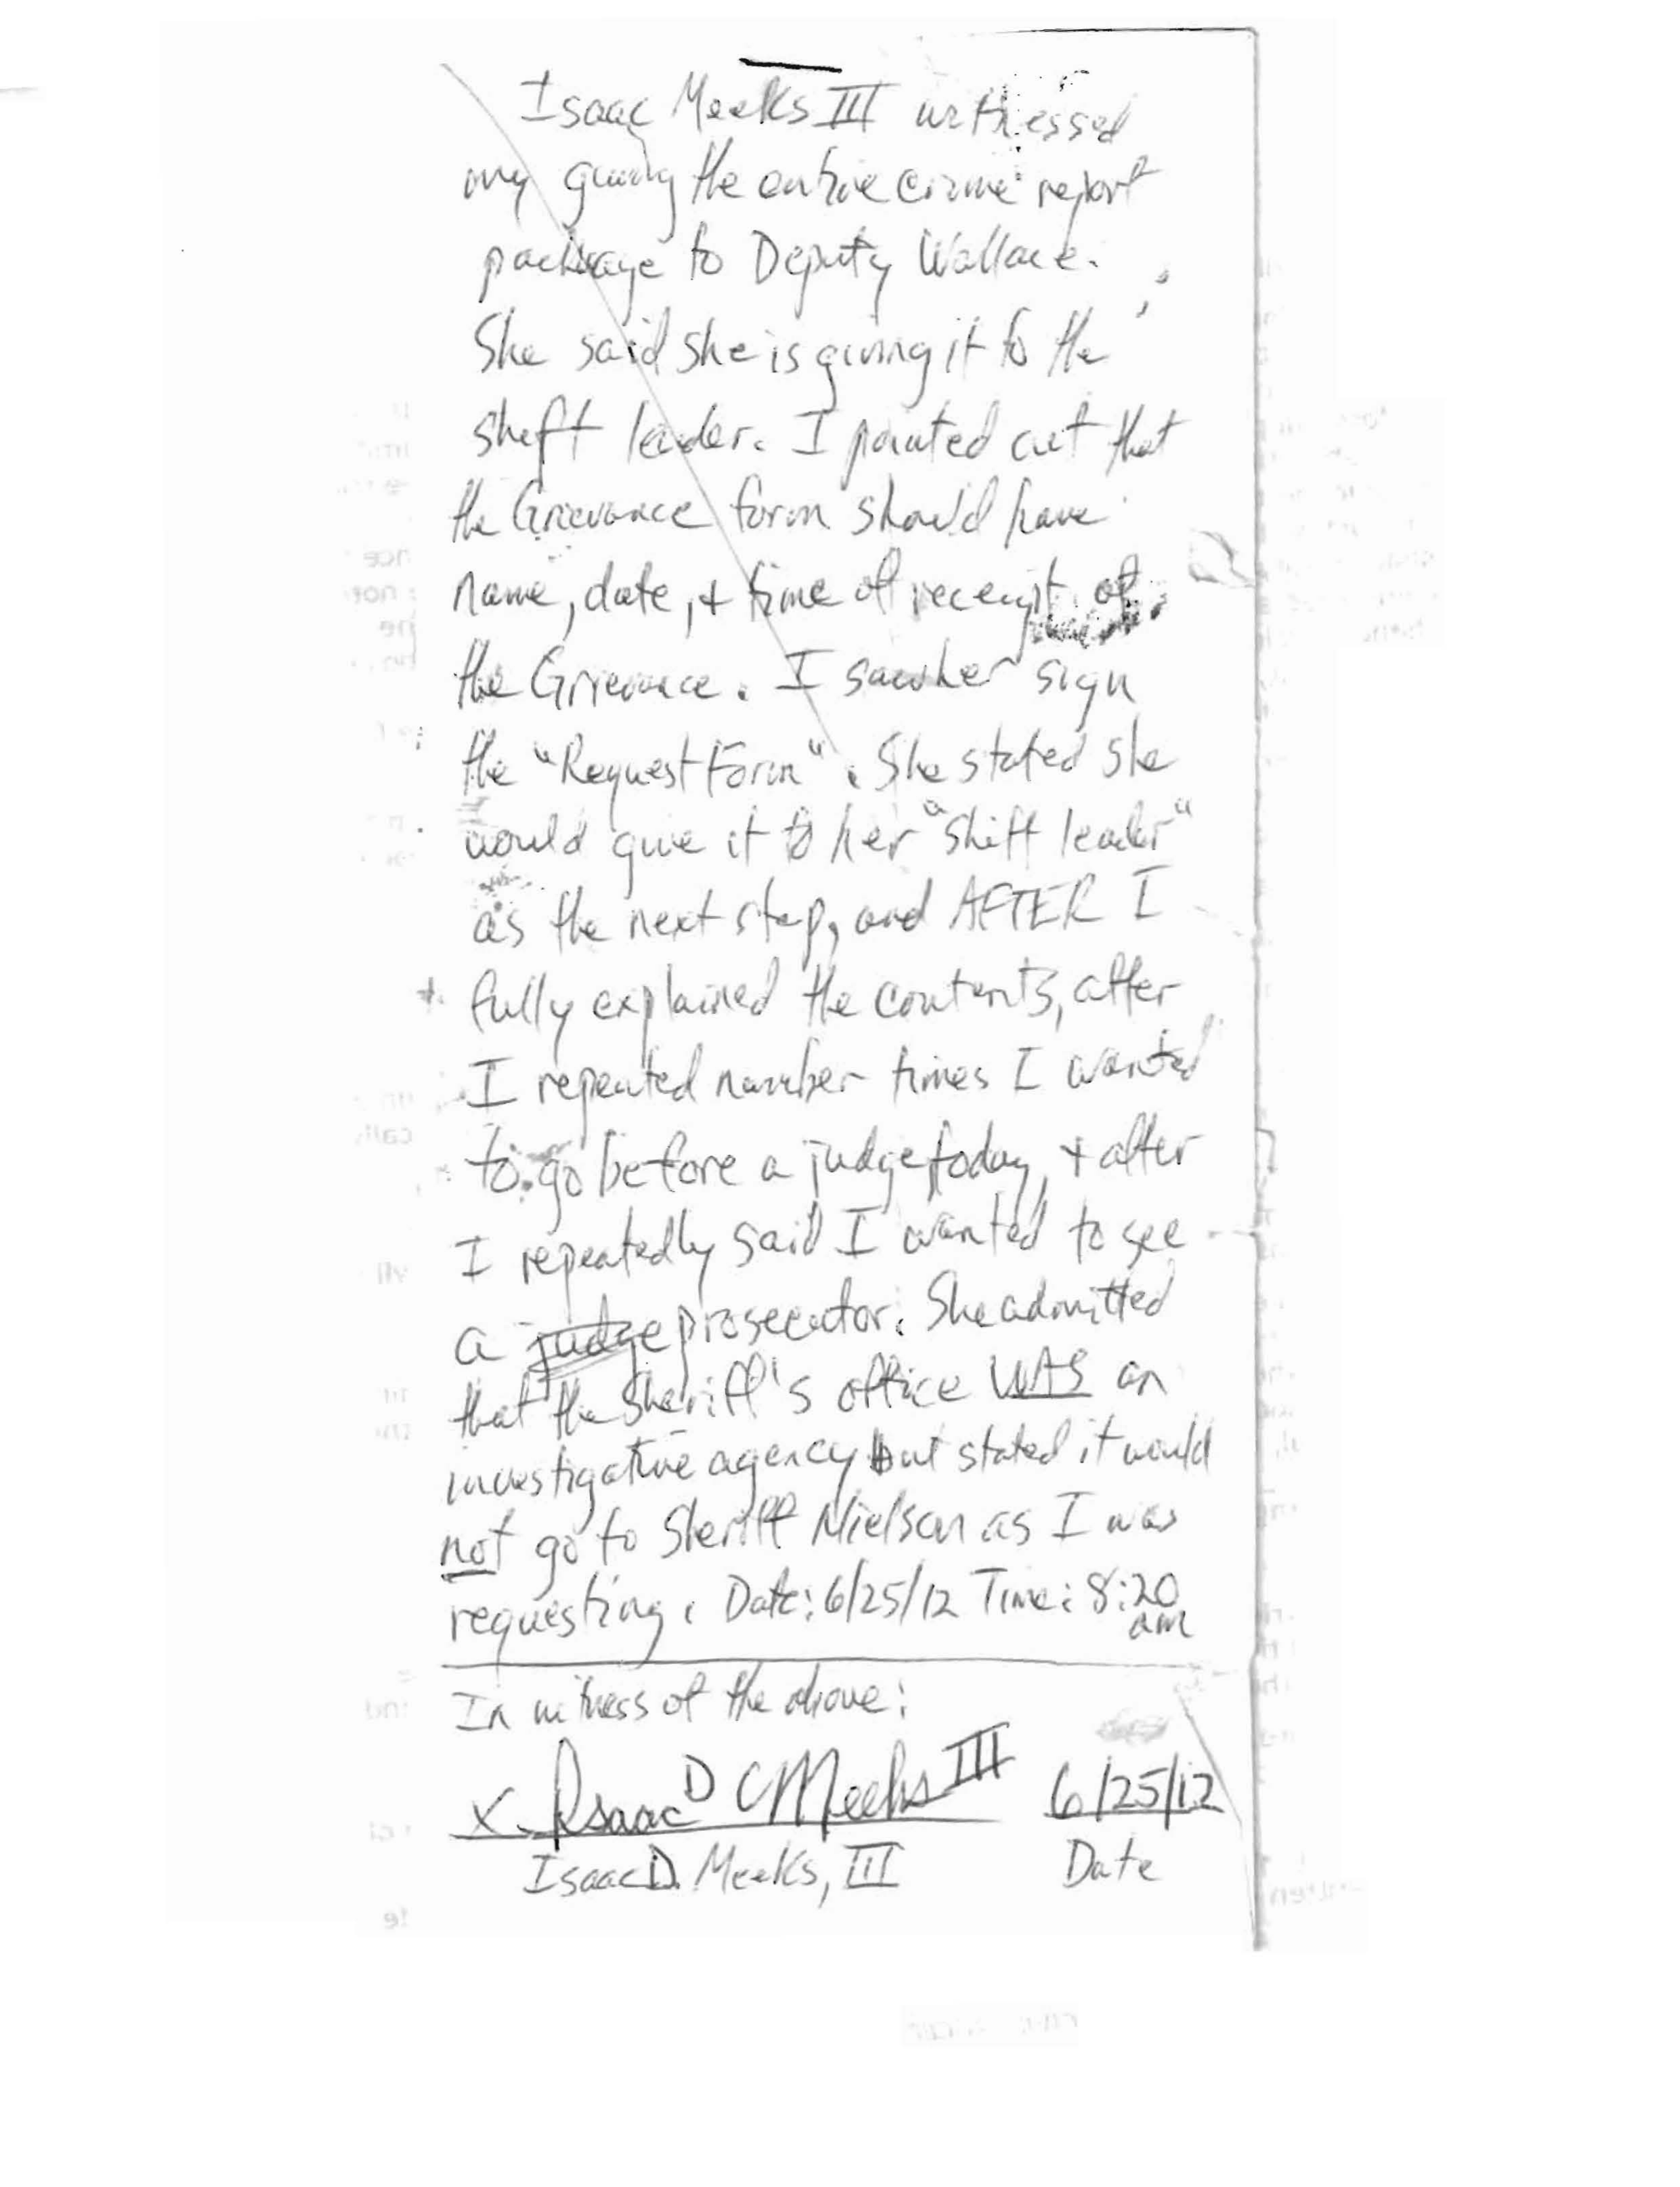 Isaac Meeks III witnessed
my giving the entire crime report
package to Deputy Wallace.
She said she is giving it to the
shift leader. I pointed out that
the Grievance form should have
name, date, + time of receipt of
the Grievance. I saw her sign
the "Request Form". She stated she
would give it to her "shift leader"
as the next step, and AFTER I
fully explained the contents, after
I repeated number times I wanted
to go before a judge today, + after
I repeatedly said I wanted to see
a judge prosecutor. She admitted
that the Sheriff's office WAS an
investigative agency but stated it would
not go to Sheriff Nielson as I was
requesting. Date: 6/25/12 Time: 8:20
am
In witness of the above:
X Isaac D Meeks III 6/25/12
Isaac D. Meeks, III Date